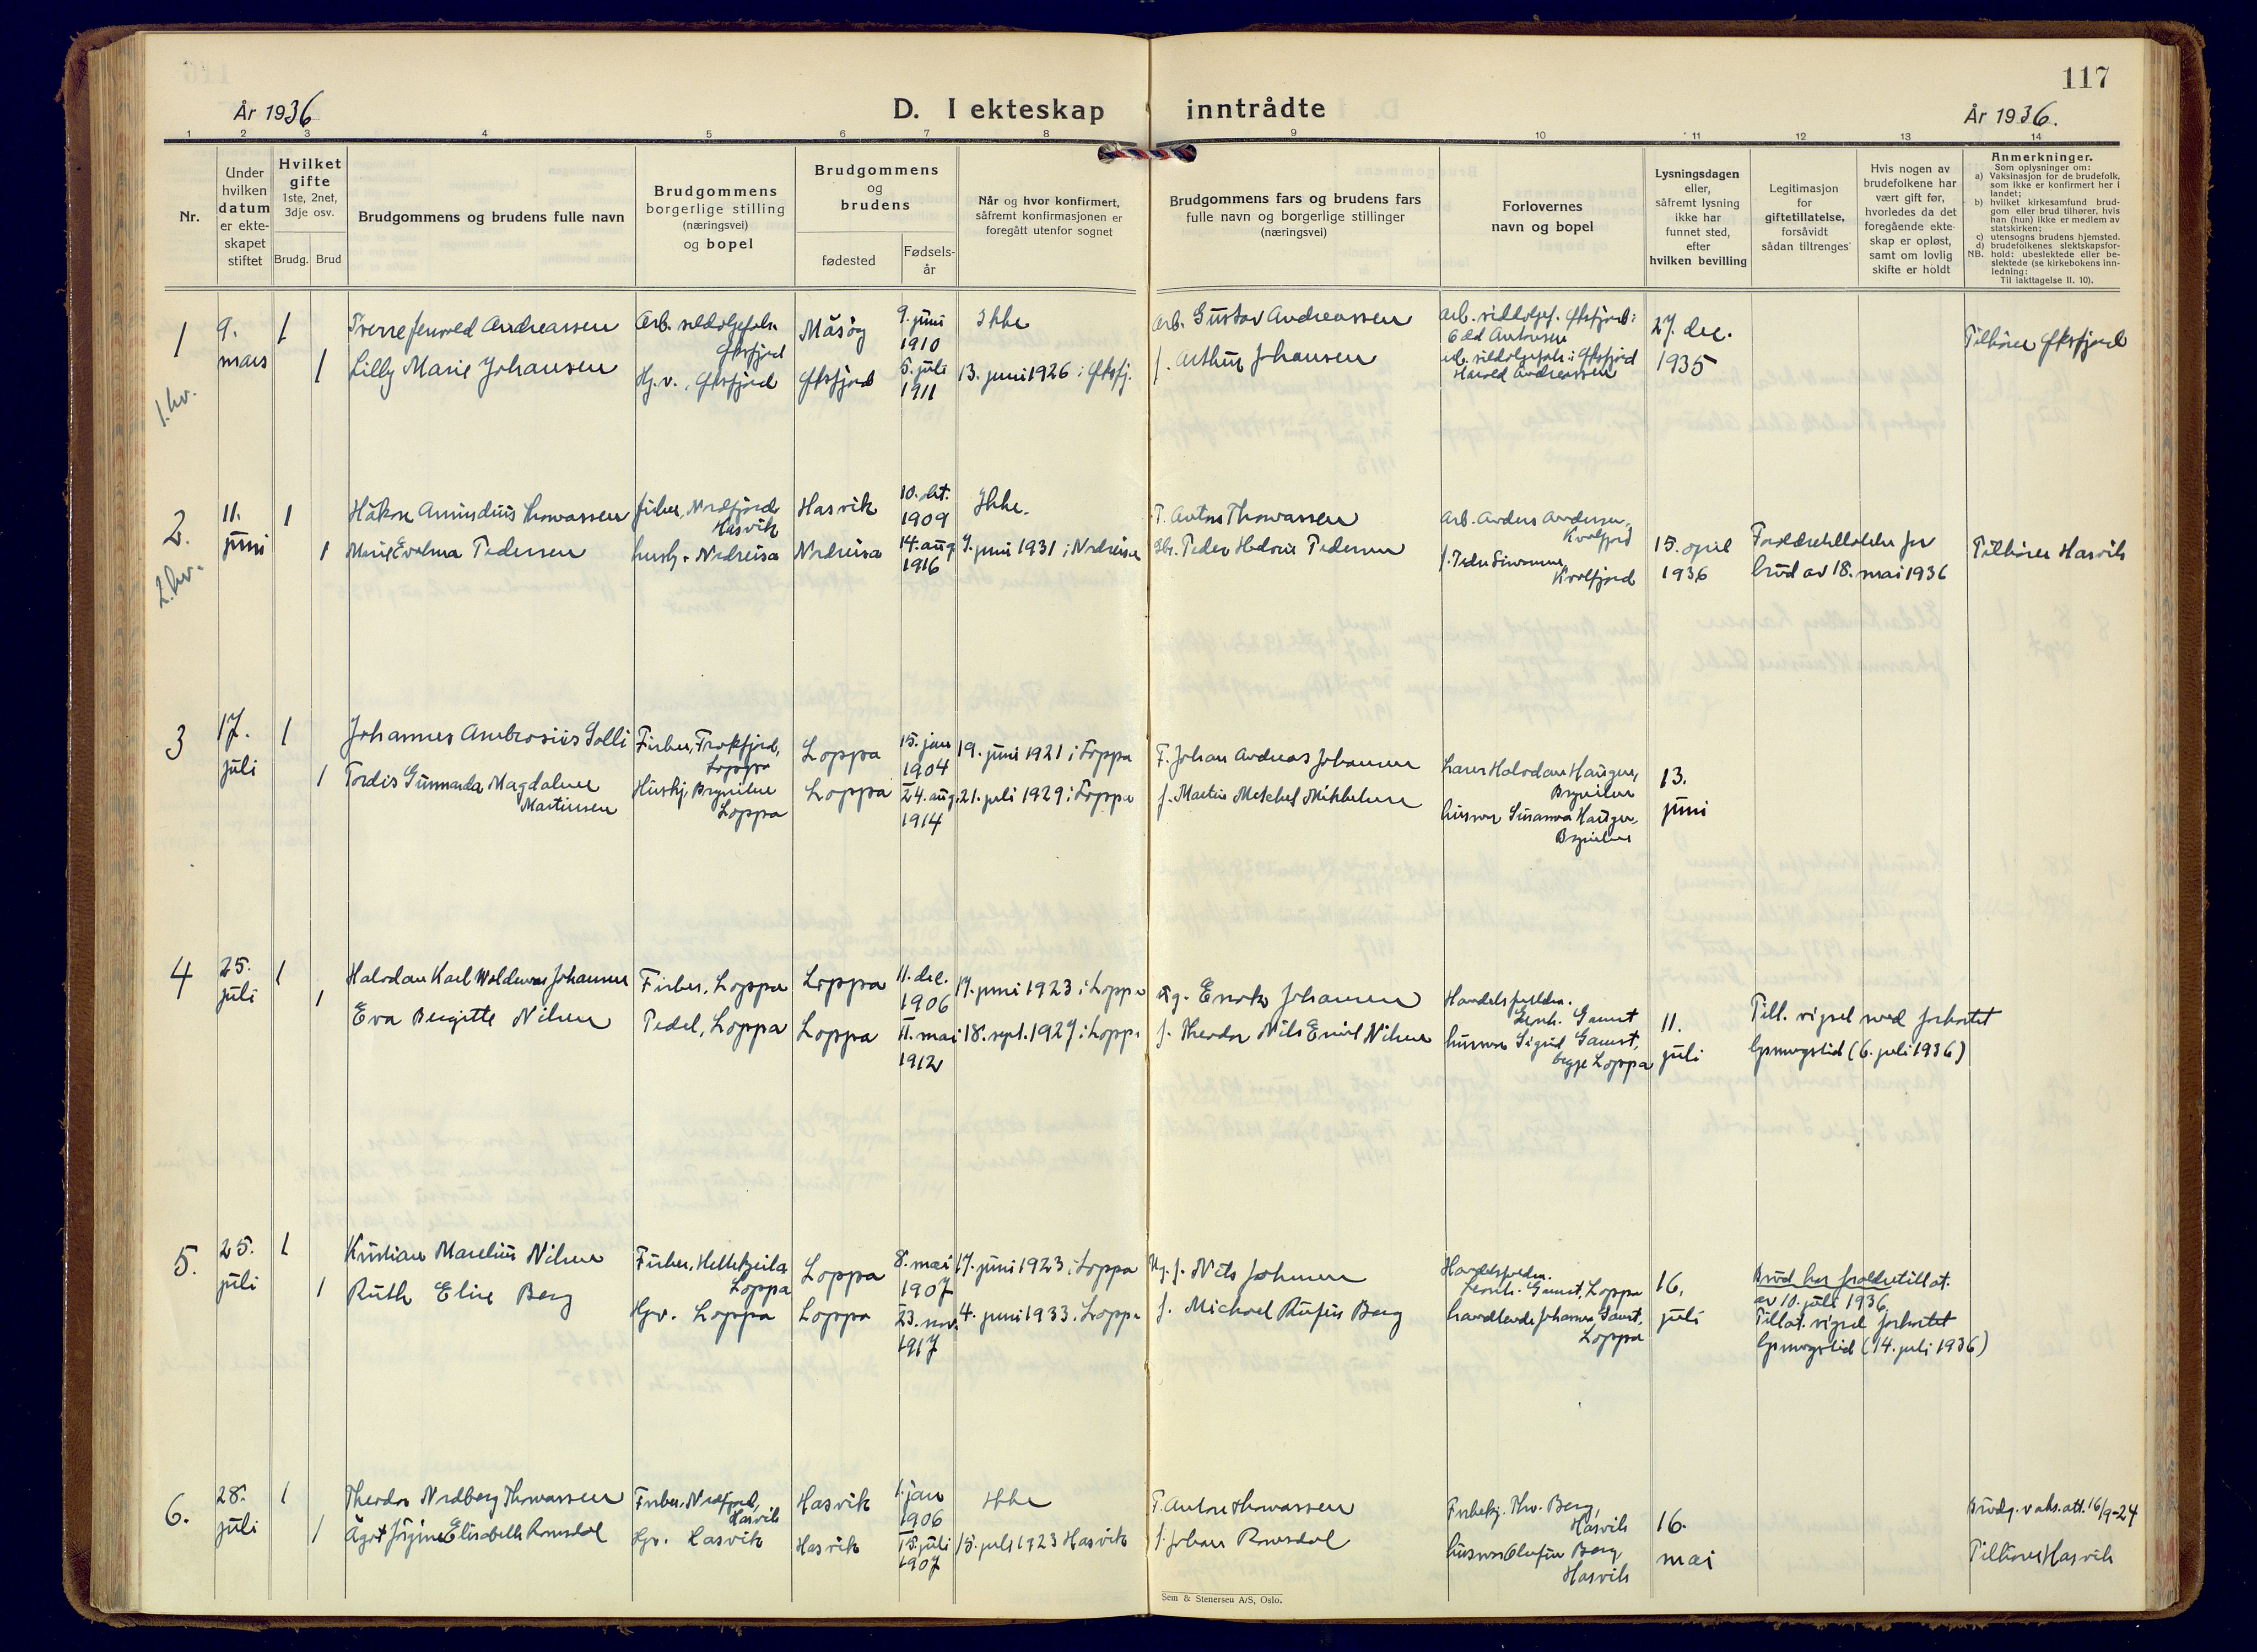 117
År 1936
D. I ekteskap inntrådte
År 1936.
1 2 3 4 5 6 7 8 9 10 11 12 13 14
Nr.
Under
hvilken
datum
er ekte-
skapet
stiftet
Hvilket
gifte
1ste, 2net,
3dje osv.
Brudg. Brud
Brudgommens og brudens fulle navn
Brudgommens
borgerlige stilling
(næringsvei)
og bopel
Brudgommens
og
brudens
fødested
Fødsels-
år
Når og hvor konfirmert,
såfremt konfirmasjonen er
foregått utenfor sognet
Brudgommens fars og brudens fars
fulle navn og borgerlige stillinger
(næringsvei)
Forlovernes
navn og bopel
Lysningsdagen
eller,
såfremt lysning
ikke har
funnet sted,
efter
hvilken bevilling
Legitimasjon
for
giftetillatelse,
forsåvidt
sådan tiltrenges
Hvis nogen av
brudefolkene har
vært gift før,
hvorledes da det
foregående ekte-
skap er opløst,
samt om lovlig
skifte er holdt
Anmerkninger.
Som oplysninger om:
a) Vaksinasjon for de brudefolk,
som ikke er konfirmert her i
landet;
b) hvilket kirkesamfund brud-
gom eller brud tilhører, hvis
han (hun) ikke er medlem av
statskirken;
c) utensogns brudens hjemsted.
d) brudefolkenes slektskapsfor-
NB. hold: ubeslektede eller be-
slektede (se kirkebokens inn-
ledning:
Til iakttagelse II. 10).
1
1. kv.
9.
mars
1
1
Sverre Andreassen
Lilly Marie Johansen
Arb. sildoljefabr.
Øksfjord
Hj.v., Øksfjord
Måsøy
Øksfjord
9. juni
1910
5. juli
1911
Ikke
13. juni 1926 i Øksfj.
Arb. Gustav Andreassen
f. Arthur Johansen
Arb. sildoljef. Øksfjord:
Odd Antonsen
arb. sildoljefabr. i Øksfjord
Harald Andreassen
27. dec.
1935
Tilhører Øksfjord
2.
2. kv.
11.
juni
1
1
Håkon Amundius Thomassen
Marie Evelma Pedersen
fisker, Nordfjord
Hasvik
hush. Nordreisa
Hasvik
Nordreisa
10. okt.
1909
14. aug
1916
Ikke.
7. juni 1931 i Nordreisa
F. Anton Thomassen
Peder Hedrin Pedersen
Arb. Anders Andersen,
Kvalfjord
f. Peder Simonsen,
Kvalfjord
15. april
1936
Foreldretillatelse for
brud av 18. mai 1936
Tilhører Hasvik
3
17.
juli
1
1
Johannes Ambrosius Solli
Tordis Gunnarda Magdalene
Martinsen
Fisker, Frakfjord,
Loppa
Hushj. Brynilen
Loppa
Loppa
Loppa
15. jan
1904
24. aug.
1914
19. juni 1921 i Loppa
21. juli 1929 i Loppa
F. Johan Andreas Johansen
f. Martin Metchel Mikkelsen
Lærer Halvdan Haugen,
Brynilen
husmor Susanna Haugen,
Brynilen
13.
juni
4
25.
juli
1
1
Halvdan Karl Waldemar Johansen
Eva Bergitte Nilsen
Fisker, Loppa
Pedel, Loppa
Loppa
Loppa
11. dec.
1906
11. mai
1912
17. juni 1923 i Loppa
18. sept. 1927 i Loppa
Enok Johansen
f. Theodor Nils Emil Nilsen
Handelsfullm.
Leonh. Gamst
husmor Sigrid Gamst,
begge Loppa
11.
juli
Till. vigsel med forkortet
lysningstid (6. juli 1936)
5.
25.
juli
1
1
Kristian Marelius Nilsen
Ruth Elise Berg
Fisker, Hellekjeila
Loppa
Hjv. Loppa
Loppa
Loppa
8. mai
1907
23. nov.
1917
17. juni 1923 i Loppa
4. juni 1933 i Loppa
Nils Johnsen
f. Michael Rufus Berg
Handelsfullm.
Leonh. Gamst, Loppa
handlende Johannes Gamst,
Loppa
16.
juli
Brud har foreldretillat.
av 10. juli 1936.
Tillat. vigsel forkortet
lysningstid (14. juli 1936)
6.
28.
juli
1
1
Theodor Nordberg Thomassen
Ågot Jørgine Elisabeth Romsdal
Fisker, Nordfjord,
Hasvik
Hjv. Hasvik
Hasvik
Hasvik
1. jan
1906
15. juli
1907
Ikke
15. juli 1923 Hasvik
F. Anton Thomassen
f. Johan Romsdal
Fiskekj. Thv. Berg,
Hasvik
husmor Olufine Berg
Hasvik
16.
mai
Brudg. vaks.att. 16/9-24
Tilhører Hasvik
Sem & Stenersen A/S, Oslo.